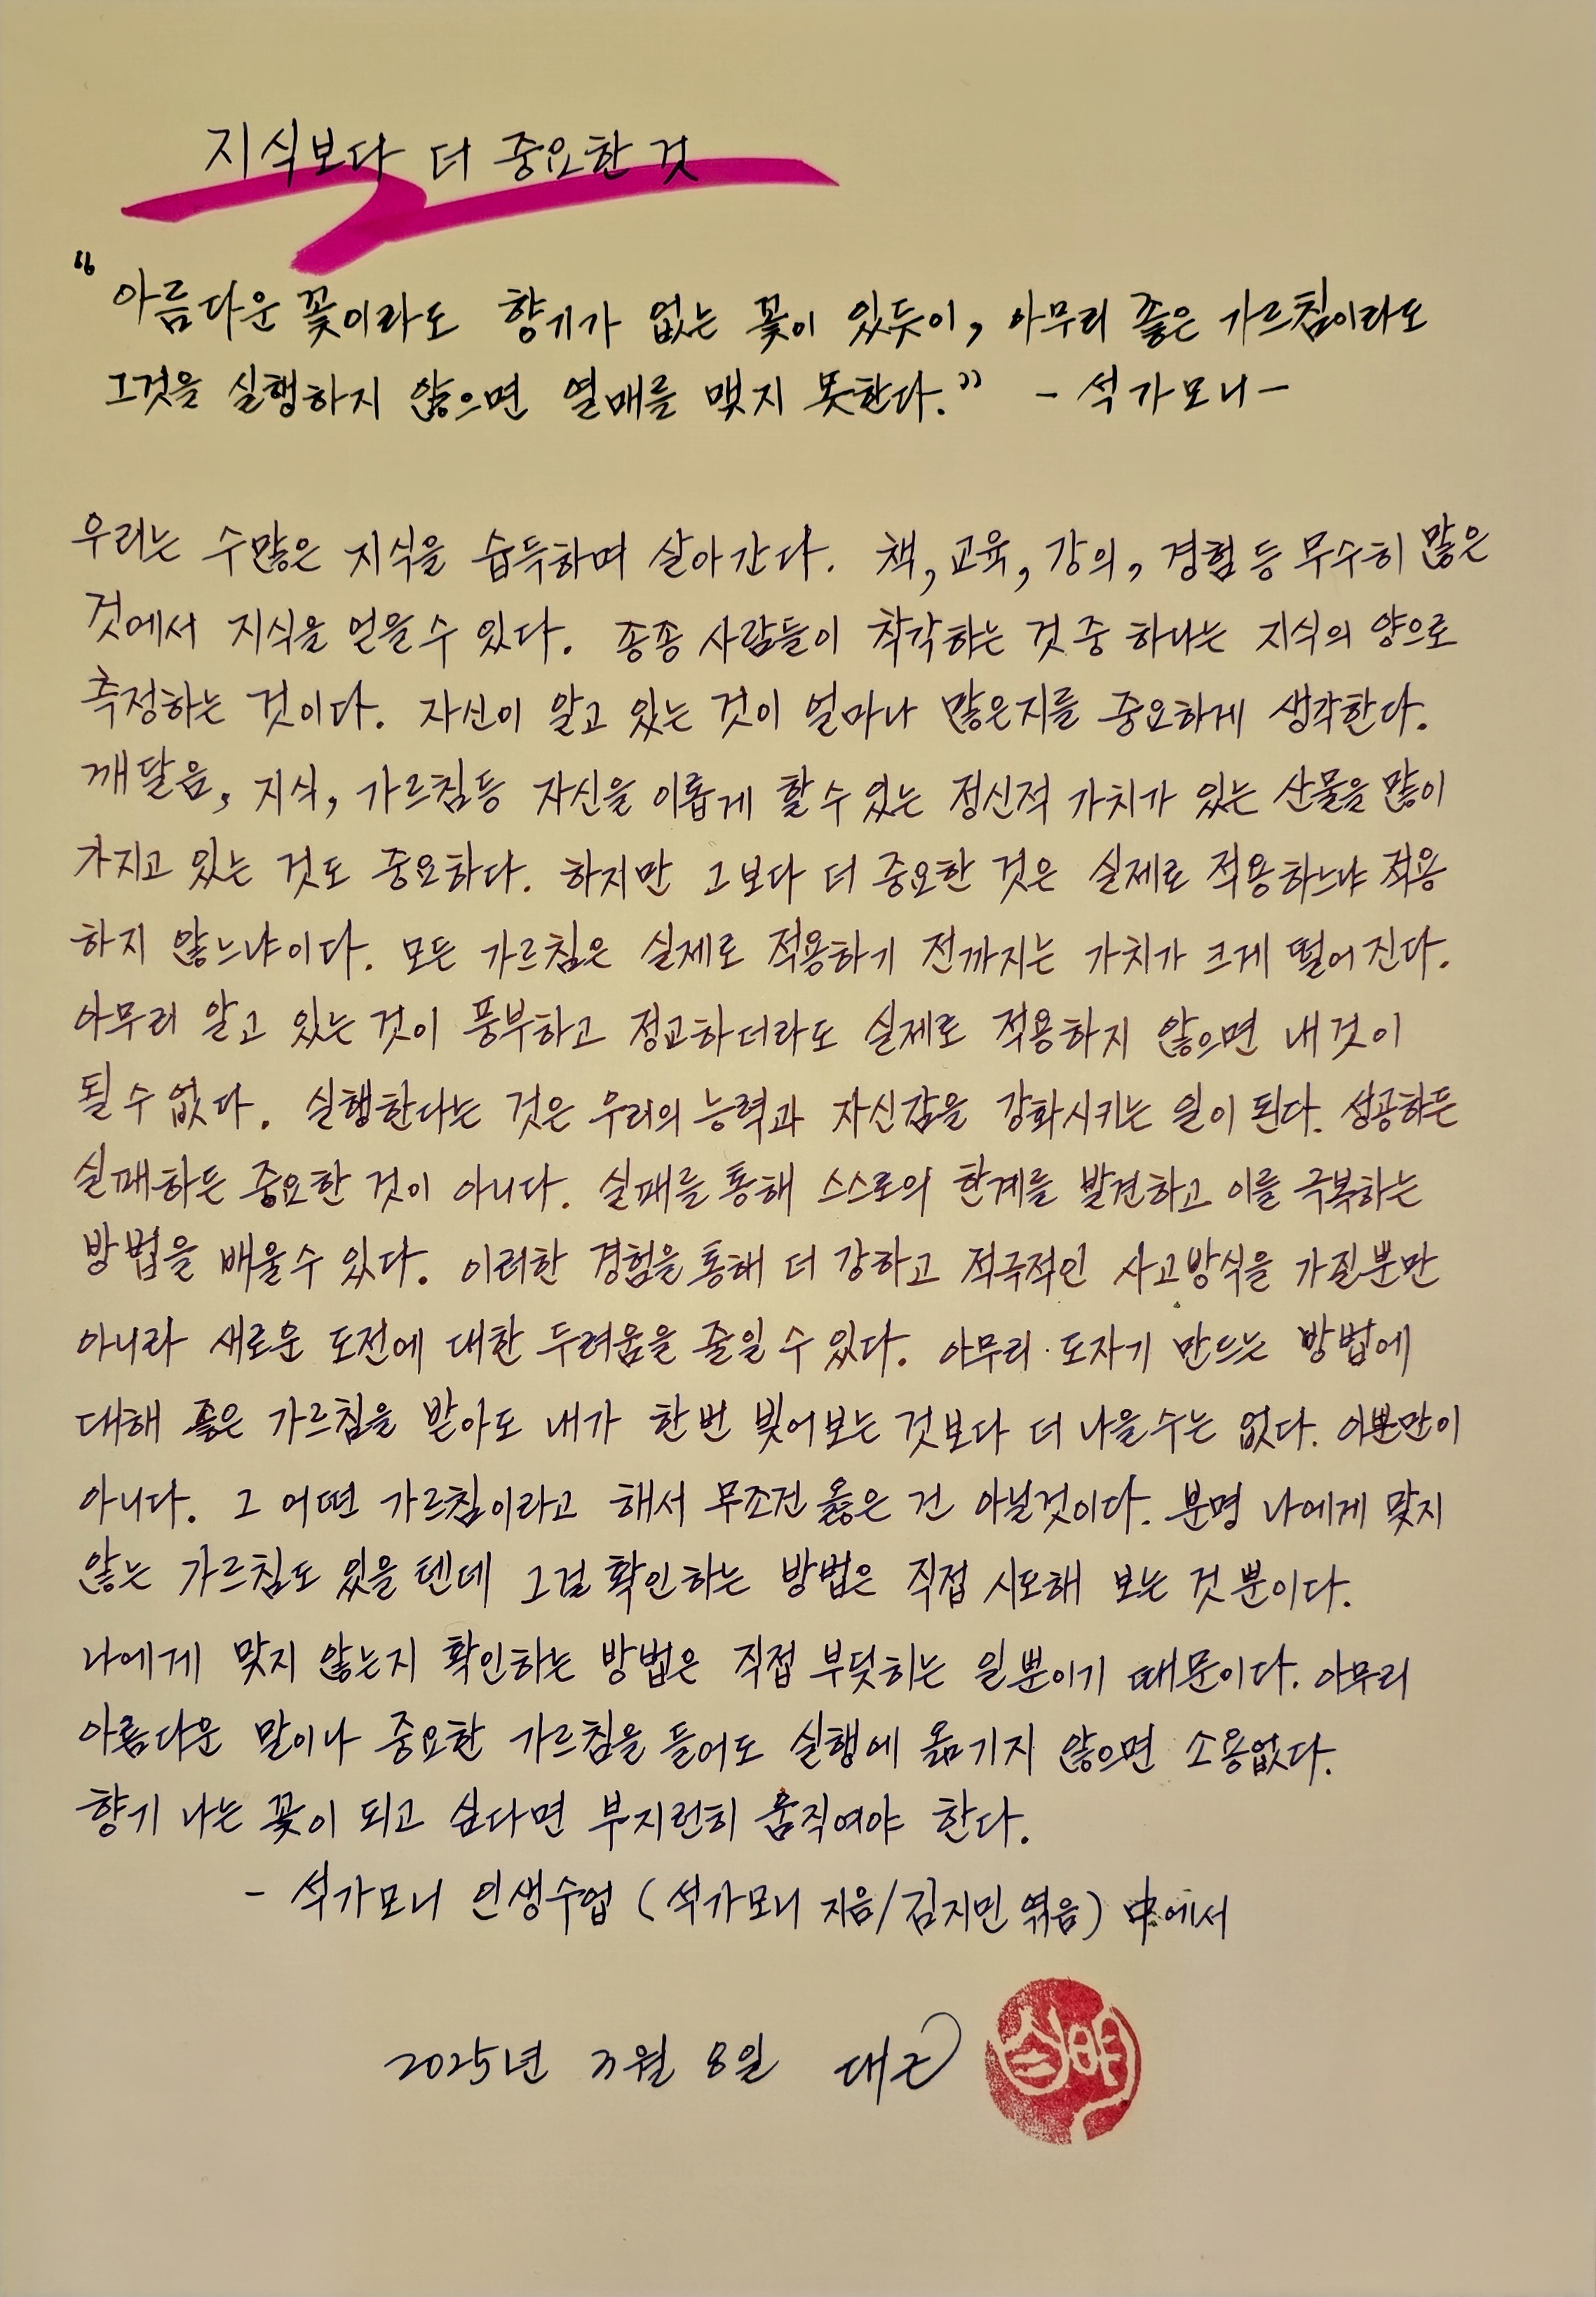 지식보다 더 중요한 것
"아름다운 꽃이라도 향기가 없는 꽃이 있듯이, 아무리 좋은 가르침이라도
그것을 실행하지 않으면 열매를 맺지 못한다." - 석가모니 -
우리는 수많은 지식을 습득하며 살아간다. 책, 교육, 강의, 경험 등 무수히 많은
것에서 지식을 얻을 수 있다. 종종 사람들이 착각하는 것 중 하나는 지식의 양으로
측정하는 것이다. 자신이 알고 있는 것이 얼마나 많은지를 중요하게 생각한다.
깨달음, 지식, 가르침 등 자신을 이롭게 할 수 있는 정신적 가치가 있는 산물을 많이
가지고 있는 것도 중요하다. 하지만 그보다 더 중요한 것은 실제로 적용하느냐 적용
하지 않느냐이다. 모든 가르침은 실제로 적용하기 전까지는 가치가 크게 떨어진다.
아무리 알고 있는 것이 풍부하고 정교하더라도 실제로 적용하지 않으면 내 것이
될 수 없다. 실행한다는 것은 우리의 능력과 자신감을 강화시키는 일이 된다. 성공하든
실패하든 중요한 것이 아니다. 실패를 통해 스스로의 한계를 발견하고 이를 극복하는
방법을 배울 수 있다. 이러한 경험을 통해 더 강하고 적극적인 사고방식을 가질뿐만
아니라 새로운 도전에 대한 두려움을 줄일 수 있다. 아무리 도자기 만드는 방법에
대해 좋은 가르침을 받아도 내가 한번 빚어보는 것보다 더 나을 수는 없다. 이뿐만이
아니다. 그 어떤 가르침이라고 해서 무조건 옳은 건 아닐것이다. 분명 나에게 맞지
않는 가르침도 있을 텐데 그걸 확인하는 방법은 직접 시도해 보는 것 뿐이다.
나에게 맞지 않는지 확인하는 방법은 직접 부딪히는 일뿐이기 때문이다. 아무리
아름다운 말이나 중요한 가르침을 들어도 실행에 옮기지 않으면 소용없다.
향기 나는 꽃이 되고 싶다면 부지런히 움직여야 한다.
- 석가모니 인생수업 (석가모니 지음/김지민 엮음) 中에서
2025년 3월 8일 대근